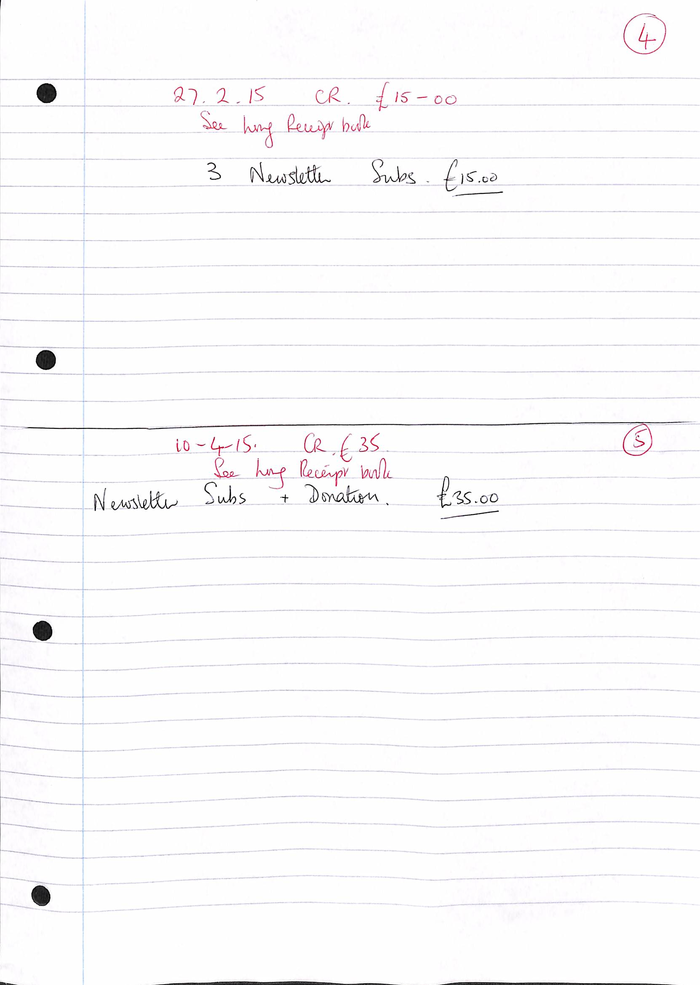 4
27. 2. 15 CR. £15-00
See Long Receipt book
3 Newsletter Subs. £15.00
5
10-4-15. CR. £35
See Long Receipt book
Newsletter Subs + Donation. £35.00